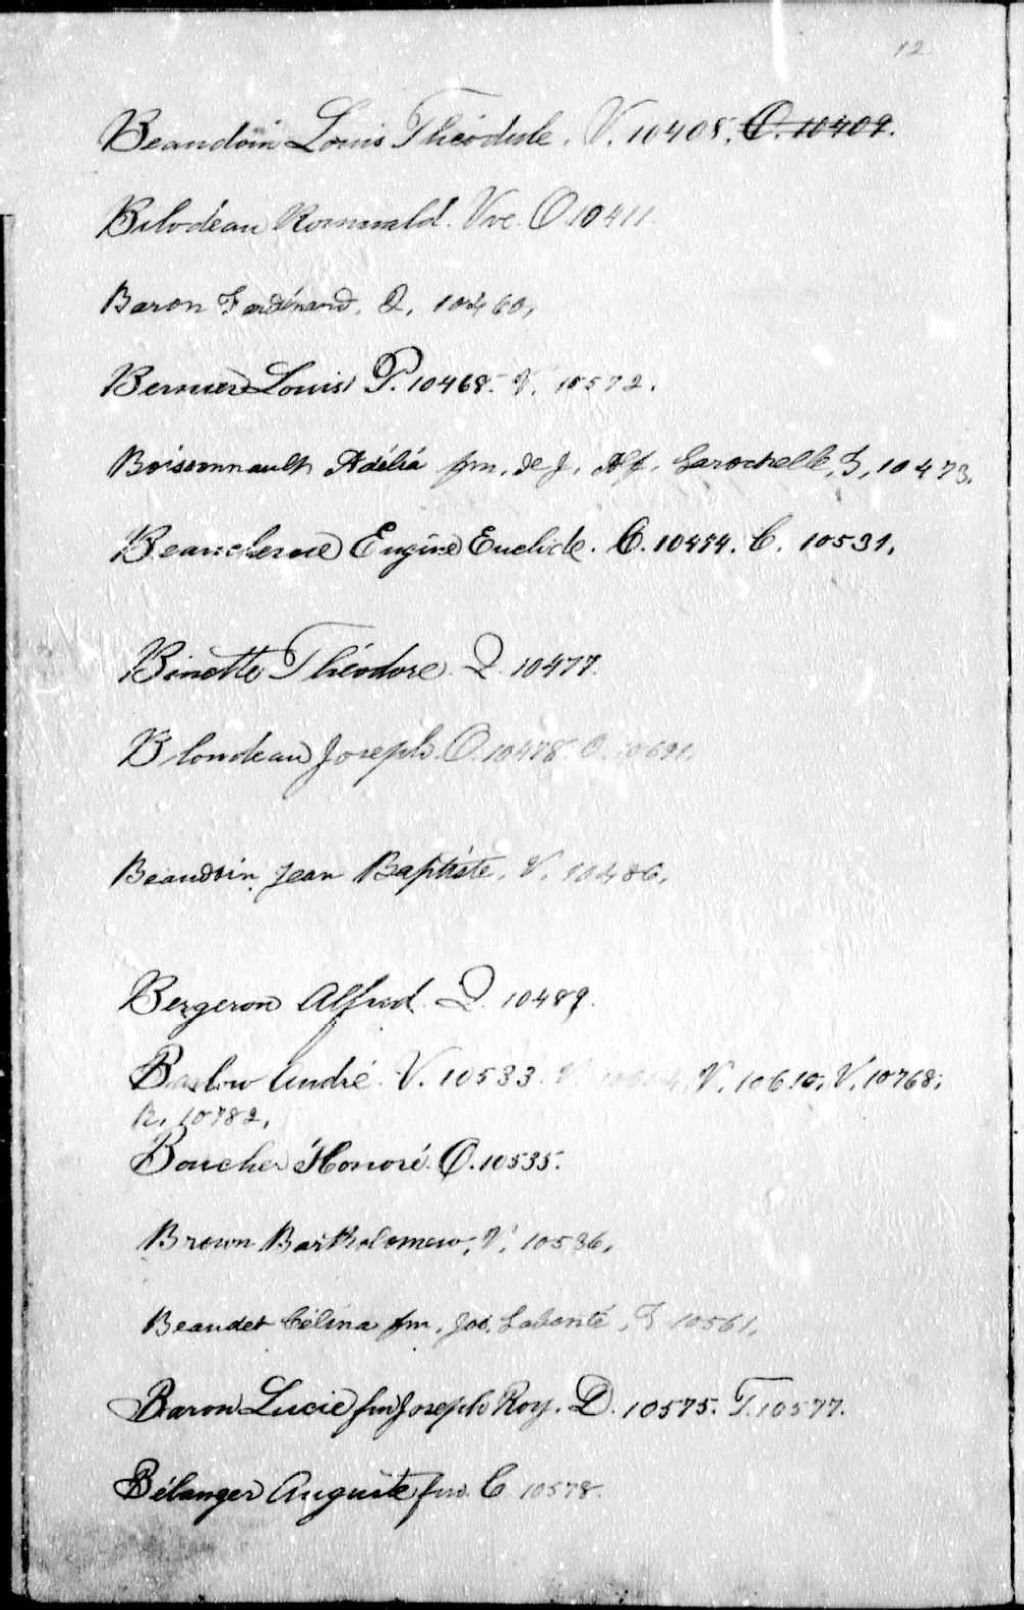 12
Beaudoin Louis Théodule. V. 10408. O. 10409.
Bilodeau Romuald. Vve. O. 10411.
Baron Ferdinand, Q, 10460,
Bernier Louis P. 10468. V. 10572.
Boissonnault Adélia fm. de J. Alf. Larochelle, T, 10473.
Beauchesne Eugène Euclide. C. 10474. C. 10531.
Binette Théodore. Q. 10477.
Blondeau Joseph. O. 10478. O. 10691.
Beaudoin Jean Baptiste, V. 10486,
Bergeron Alfred. Q. 10489.
Barlow André. V. 10533. V. V. 10610, V. 10768.
R. 10782,
Boucher Honoré. O. 10535.
Brown Bartholomew, V. 10536,
Beaudet Célina fm. Jos. Labonté, T 10561,
Baron Lucie fm Joseph Roy. D. 10575. T. 10577.
Bélanger Auguste fm. C 10578.